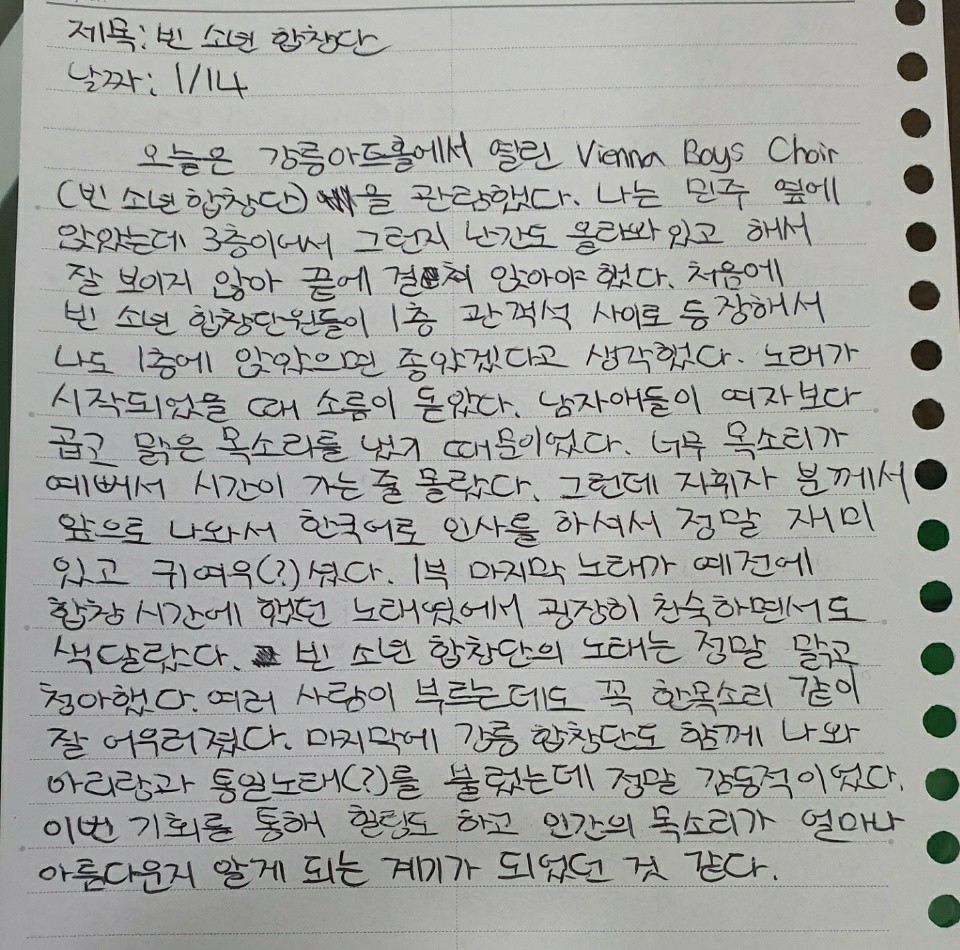 제목: 빈 소년 합창단
날짜: 1/14
오늘은 강릉아트홀에서 열린 Vienna Boys Choir
(빈 소년 합창단)을 관람했다. 나는 민주 옆에
앉았는데 3층이여서 그런지 난간도 올라와있고 해서
잘 보이지 않아 끝에 걸쳐 앉아야 했다. 처음에
빈 소년 합창단원들이 1층 관객석 사이로 등장해서
나도 1층에 앉았으면 좋았겠다고 생각했다. 노래가
시작되었을 때 소름이 돋았다. 남자애들이 여자보다
곱고 맑은 목소리를 냈기 때문이었다. 너무 목소리가
예뻐서 시간이 가는 줄 몰랐다. 그런데 지휘자 분께서
앞으로 나와서 한국어로 인사를 하셔서 정말 재미
있고 귀여우(?)셨다. 1부 마지막 노래가 예전에
합창 시간에 했던 노래였에서 굉장히 친숙하면서도
색달랐다. 빈 소년 합창단의 노래는 정말 맑고
청아했다. 여러 사람이 부르는데도 꼭 한목소리 같이
잘 어우러졌다. 마지막에 강릉 합창단도 함께 나와
아리랑과 통일노래(?)를 불렀는데 정말 감동적이었다.
이번 기회를 통해 힐링도 하고 인간의 목소리가 얼마나
아름다운지 알게 되는 계기가 되었던 것 같다.